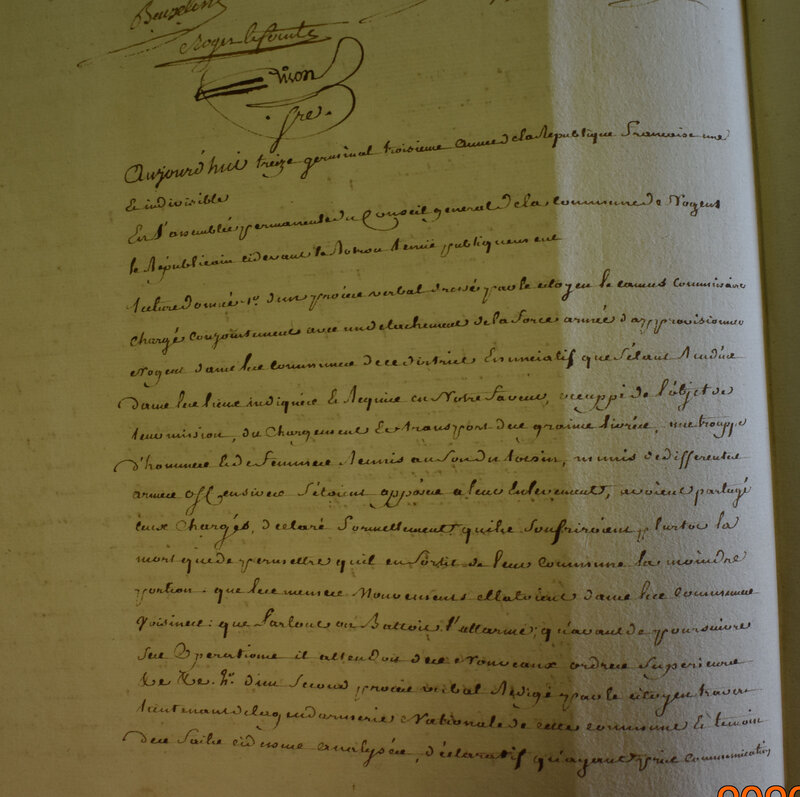 Roger le Comte
Aujourd'hui treize germinal troisieme année de la Republique francaise une
Et indivisible
En l'assemblée permanente du Conseil general de la commune de Nogent
le Républicain cidevant le Rotrou tenue publiquement
lecture donnée 1º d'un procès verbal dressé par le citoyen le camus Commissaire
chargé conjointement avec un detachement de la force armée d'approvisionner
Nogent dans les communes de ce district Enonciatif que s'étant rendus
dans les lieux indiqués Et requis en notre faveur, occuppé de l'objet de
leur mission, du chargement Et transport des grains livrés, une trouppe
d'hommes Et de femmes reunis au son du tocsin, munis de differentes
armes offensives s'étoient opposés a leur Enlevement, avoient partagé
ceux chargés, déclaré formellement qu'ils souffriroient plutot la
mort que de permettre qu'il en sortit de leur commune la moindre
portion. que les memes mouvements Eclatoient dans les communes
voisines: que partout on Battoit l'allarme; qu'avant de poursuivre
ses operations il attendoit des nouveaux ordres superieurs
2º. d'un second procès verbal redigé par le citoyen travers
lieutenant de la gendarmerie Nationale de cette commune Et temoin
des faits cidessus analysés, déclaratif qu'ayant pris communication